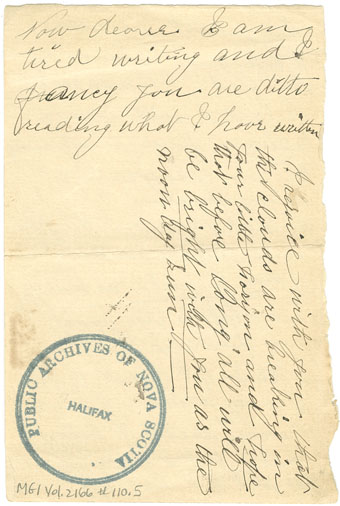 Now dearie I am
tired writing and I
fancy you are ditto
reading what I have written
I rejoice with you that
the clouds are breaking in
your little horizon and hope
that before long all will
be bright with you as the
noon day sun!
PUBLIC ARCHIVES OF NOVA SCOTIA
HALIFAX
MG1 Vol. 2166 # 110.5